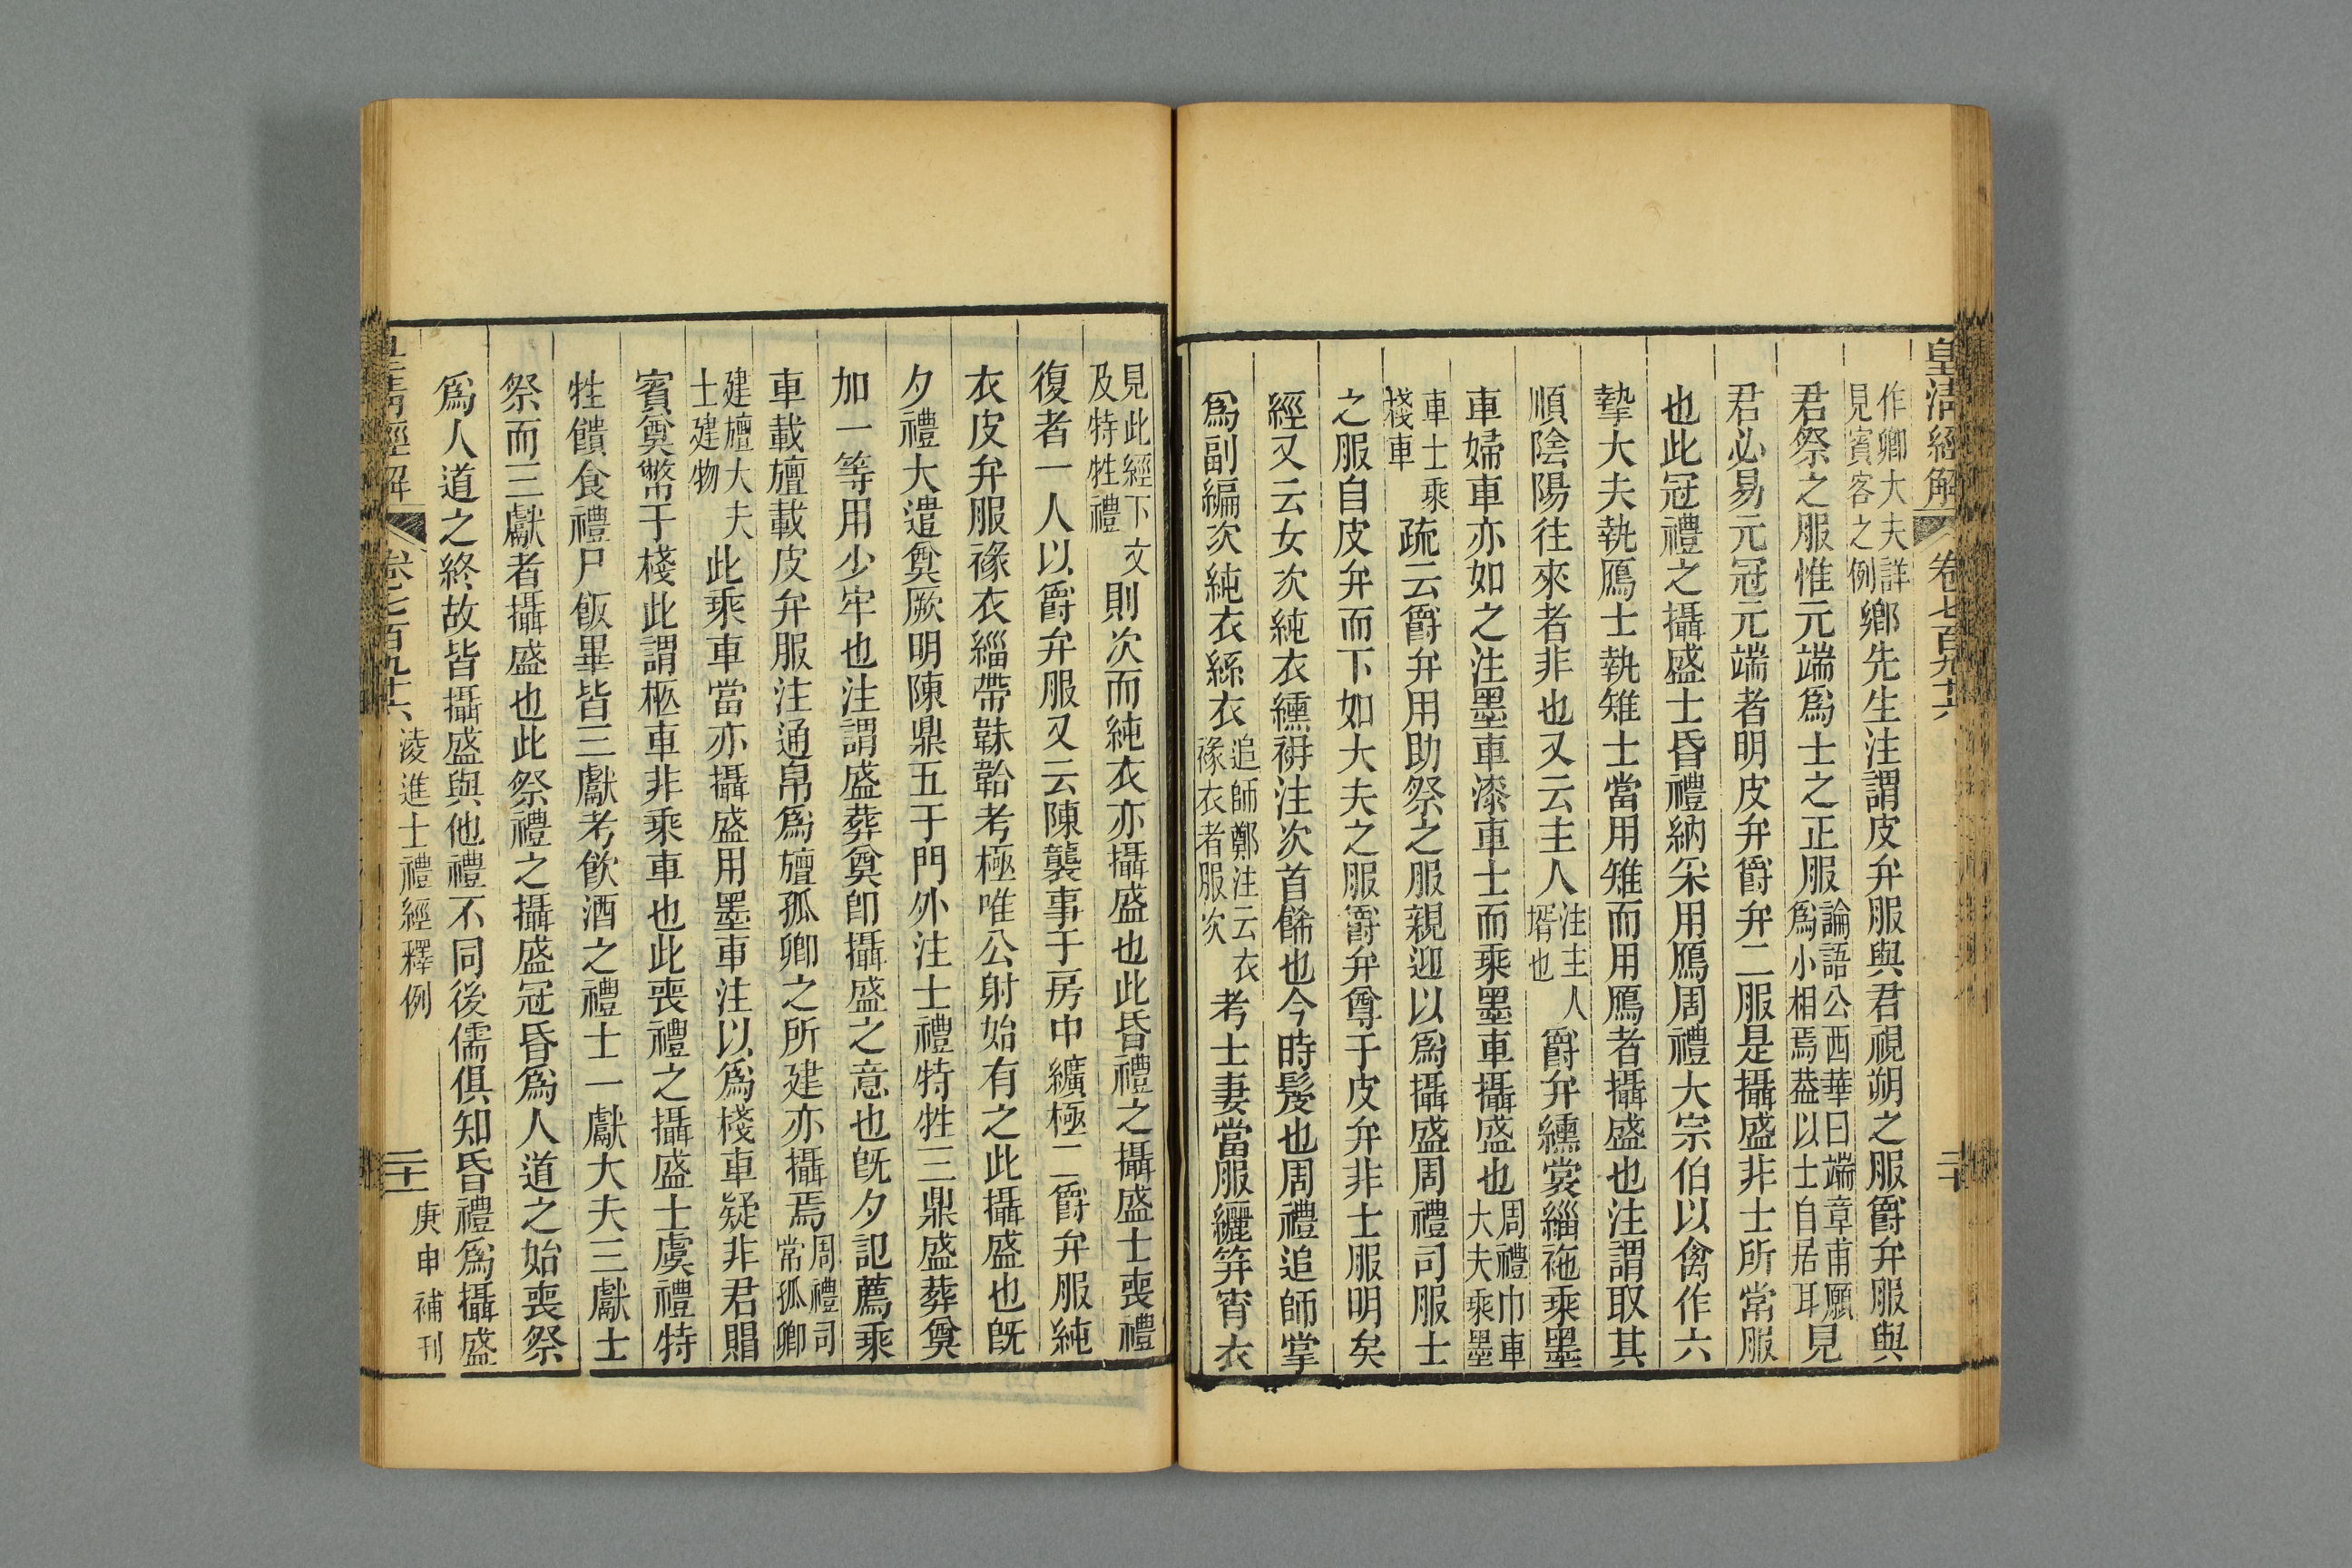 皇清經解 卷七百九十六 二十
作卿大夫詳見賓客之例鄉先生注謂皮弁服與君視朔之服爵弁服與
君祭之服惟元端爲士之正服論語公西華曰端章甫願爲小相焉葢以士自居耳見
君必易元冠元端者明皮弁爵弁二服是攝盛非士所常服
也此冠禮之攝盛士昏禮納采用鴈周禮大宗伯以禽作六
摯大夫執鴈士執雉士當用雉而用鴈者攝盛也注謂取其
順陰陽往來者非也又云主人注主人壻也爵弁纁裳緇袘乘墨
車婦車亦如之注墨車漆車士而乘墨車攝盛也周禮巾車大夫乘墨
車士乘棧車疏云爵弁用助祭之服親迎以爲攝盛周禮司服士
之服自皮弁而下如大夫之服爵弁尊于皮弁非士服明矣
經又云女次純衣纁袡注次首餙也今時髲也周禮追師掌
爲副編次純衣絲衣追師鄭注云衣褖衣者服次考士妻當服纚笄宵衣
見此經下文及特牲禮則次而純衣亦攝盛也此昏禮之攝盛士喪禮
復者一人以爵弁服又云陳襲事于房中纊極二爵弁服純
衣皮弁服褖衣緇帶韎韐考極唯公射始有之此攝盛也旣
夕禮大遣奠厥明陳鼎五于門外注士禮特牲三鼎盛葬奠
加一等用少牢也注謂盛葬奠卽攝盛之意也旣夕記薦乘
車載旜載皮弁服注通帛爲旜孤卿之所建亦攝焉周禮司常孤卿
建旜大夫士建物此乘車當亦攝盛用墨車注以爲棧車疑非君賵
賓奠幣于棧此謂柩車非乘車也此喪禮之攝盛士虞禮特
牲饋食禮尸飯畢皆三獻考飮酒之禮士一獻大夫三獻士
祭而三獻者攝盛也此祭禮之攝盛冠昏爲人道之始喪祭
爲人道之終故皆攝盛與他禮不同後儒俱知昏禮爲攝盛
皇清經解 卷七百九十六 凌進士禮經釋例 二十一 庚申補刊